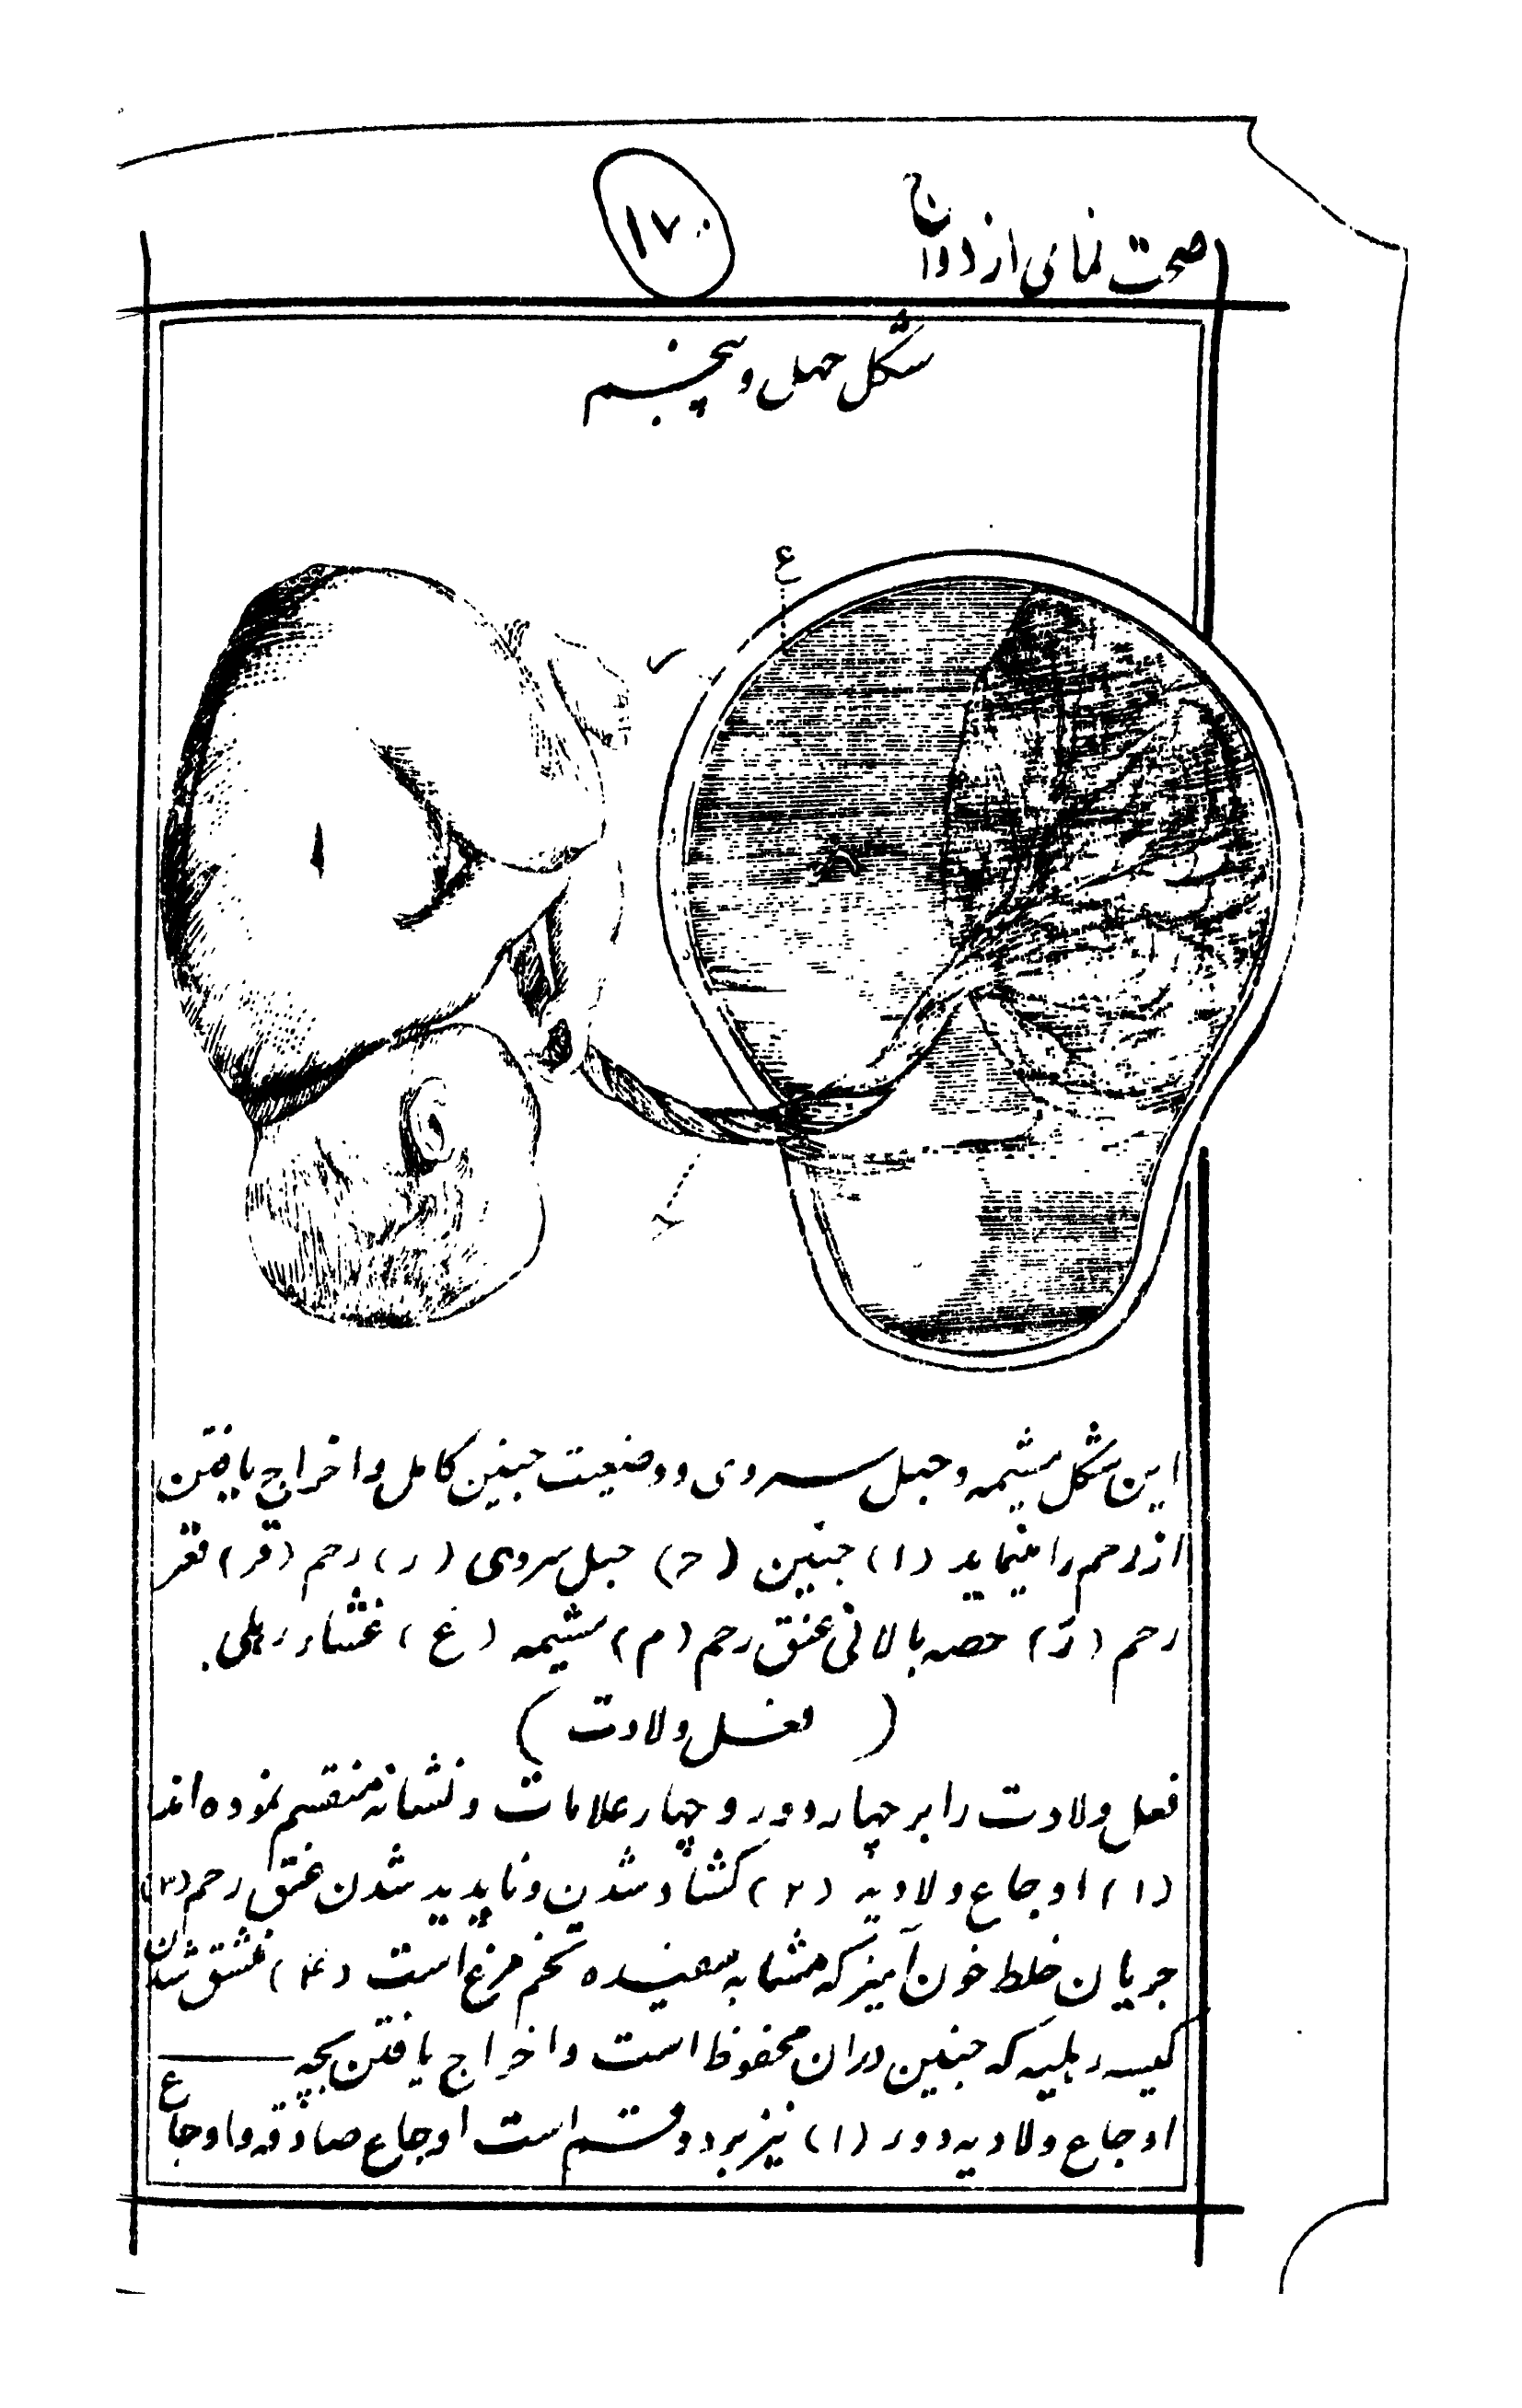 صحت نمای ازدواج
۱۷۰
شکل چهل و پنجم
ع
ا
م
این شکل مشیمه و حبل سروی و وضعیت جنین کامل و اخراج یافتن
از رحم را مینماید (ا) جنین (ح) حبل سروی (ر) رحم (قر) قعر
رحم (رَ) حصه بالائی عنق رحم (م) مشیمه (غ) غشاء رهلی.
(فعل ولادت)
فعل ولادت را بر چهار دور و چهار علامات و نشانه منقسم نموده اند
(۱) اوجاع ولادیه (۲) کشاد شدن و ناپدید شدن عنق رحم (۳)
جریان خلط خون آمیز که مشابه سفیده تخم مرغ است (۴) منشق شدن
کیسه رهلیه که جنین دران محفوظ است و اخراج یافتن بچه
اوجاع ولادیه دور (۱) نیز بر دو قسم است اوجاع صادقه و اوجاع